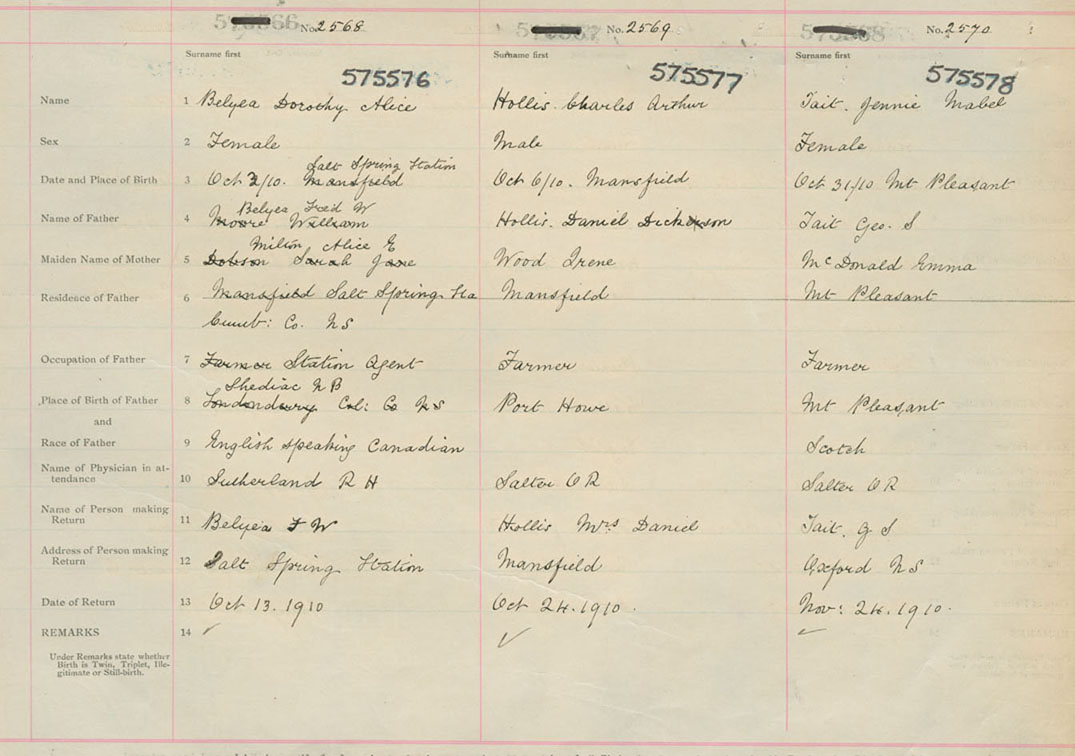 No. 2568
No. 2569
No. 2570
Surname first
Surname first
Surname first
575576
575577
575578
Name 1 Belyea Dorothy Alice
Hollis. Charles Arthur
Tait. Jennie Mabel
Sex 2 Female
Male
Female
Salt Spring Station
Date and Place of Birth 3 Oct 2/10. Mansfield
Oct 6/10. Mansfield
Oct 31/10 Mt Pleasant
Belyea Fred W
Name of Father 4 Moore William
Hollis. Daniel Dickerson
Tait Geo. S
Milton Alice E
Maiden Name of Mother 5 Dobson Sarah Jane
Wood Irene
McDonald Emma
Residence of Father 6 Mansfield Salt Spring Sta
Mansfield
Mt Pleasant
Cumb: Co. NS
Occupation of Father 7 Farmer Station Agent
Farmer
Farmer
Shediac N B
Place of Birth of Father 8 Londonderry Col: Co NS
Port Howe
Mt Pleasant
and
Race of Father 9 English speaking Canadian
Scotch
Name of Physician in at-
tendance 10 Sutherland R H
Salter O R
Salter O R
Name of Person making
Return 11 Belyea F W
Hollis Mrs Daniel
Tait. G S
Address of Person making
Return 12 Salt Spring Station
Mansfield
Oxford NS
Date of Return 13 Oct 13. 1910
Oct 24. 1910.
Nov: 24. 1910.
REMARKS 14
Under Remarks state whether
Birth is Twin, Triplet, Ille-
gitimate or Still-birth.